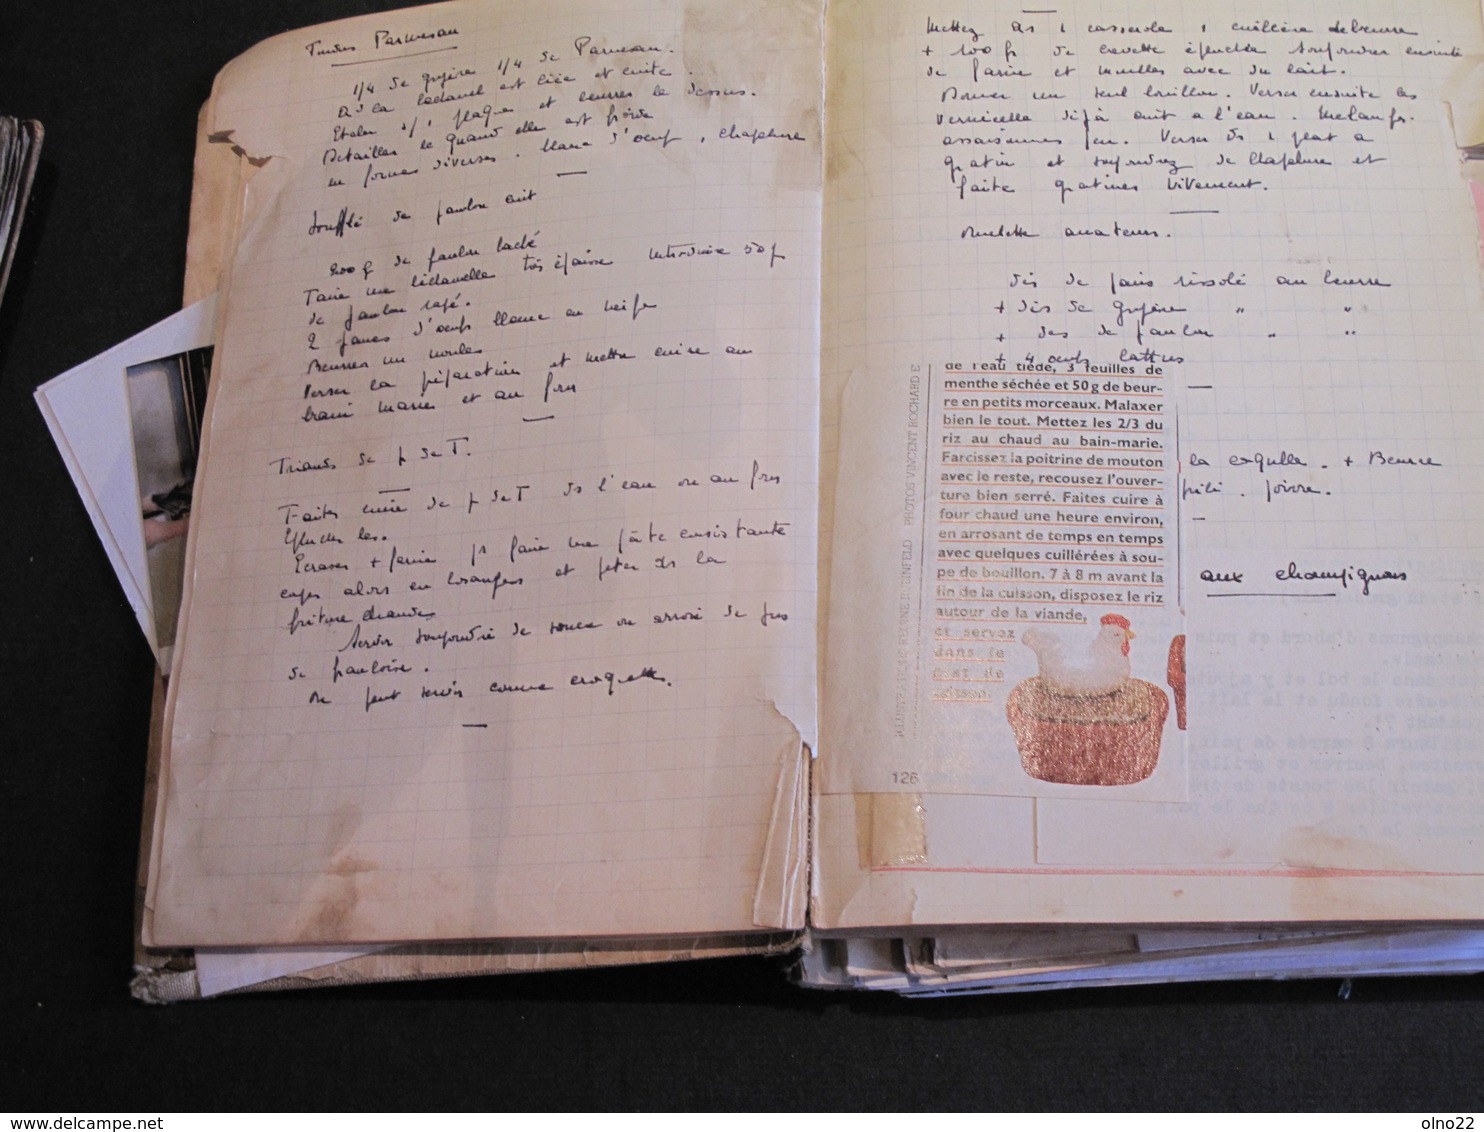 Parmesan
1/4 de gruyère 1/4 de Parmesan.
est liée et cuite.
Etaler s/ 1 plaque et beurrer le dessus.
Détailler le quand elle est froide
en formes diverses. blanc d'oeuf, chapelure
Soufflé de jambon cuit
200 g de jambon haché
Faire une béchamelle très épaisse introduire 50 g
de jambon rapé.
2 jaunes d'oeufs blancs en neige
Beurrer un moule
Verser la préparation et mettre cuire au
bain marie et au four
de p de T.
Faites cuire de p de T ds l'eau ou au four
Epluchez les.
Ecraser + farine pr faire une pâte consistante
alors en losanges et jeter ds la
friture chaude
Servir de sauce ou arrosé de jus
de
on peut servir comme croquettes.
Mettez ds 1 casserole 1 cuillère de beurre
+ 100 gr de crevette épluchée saupoudrer ensuite
de farine et mouiller avec du lait.
Donner un seul bouillon. Verser ensuite les
vermicelle déjà cuit a l'eau. Melanger.
assaisonner peu. Verser ds 1 plat a
gratin et saupoudrez de chapelure et
faite gratiner vivement.
Omelette amateur.
dés de pain rissolé au beurre
+ dés de gruyère " "
+ des de jambon " "
+ 4 oeufs battus
de l'eau tiède, 3 feuilles de
menthe séchée et 50 g de beur-
re en petits morceaux. Malaxer
bien le tout. Mettez les 2/3 du
riz au chaud au bain-marie.
Farcissez la poitrine de mouton
avec le reste, recousez l'ouver-
ture bien serré. Faites cuire à
four chaud une heure environ,
en arrosant de temps en temps
avec quelques cuillérées à sou-
pe de bouillon. 7 à 8 m avant la
fin de la cuisson, disposez le riz
autour de la viande,
et servez
dans le
plat de
cuisson.
PHOTOS VINCENT ROCHARD E
126
la + Beurre
poivre.
aux champignons
olno22